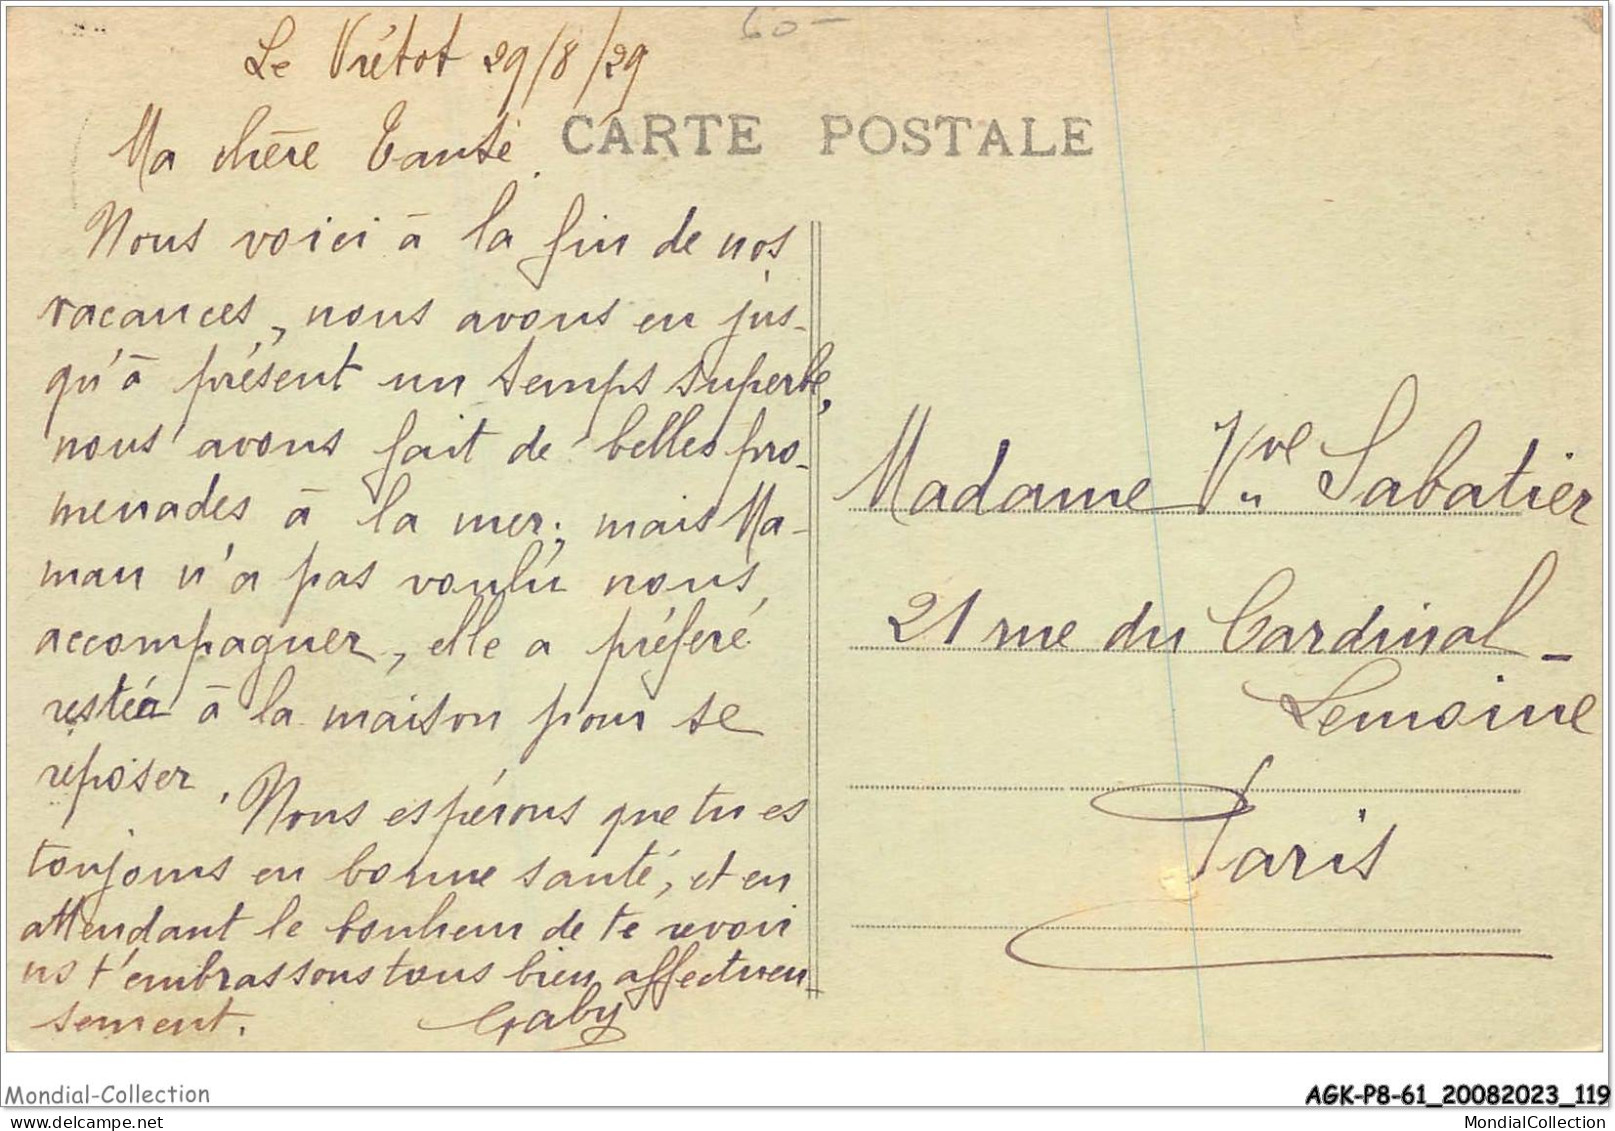 60-
Le Vrétot 29/8/29
CARTE POSTALE
Ma chère Tante
Nous voici à la fin de nos
vacances, nous avons eu jus-
qu'à présent un temps superbe,
nous avons fait de belles pro-
menades à la mer; mais Ma-
man n'a pas voulu nous
accompagner, elle a préféré
restée à la maison pour se
reposer. Nous espérons que tu es
toujours en bonne santé, et en
attendant le bonheur de te revoir
ns t'embrassons tous bien affectueu
sement. Gaby
Madame Vve Sabatier
21 rue du Cardinal-
Lemoine
Paris
Mondial-Collection
AGK-P8-61_20082023_119
www.mondialcollection.com
MondialCollection